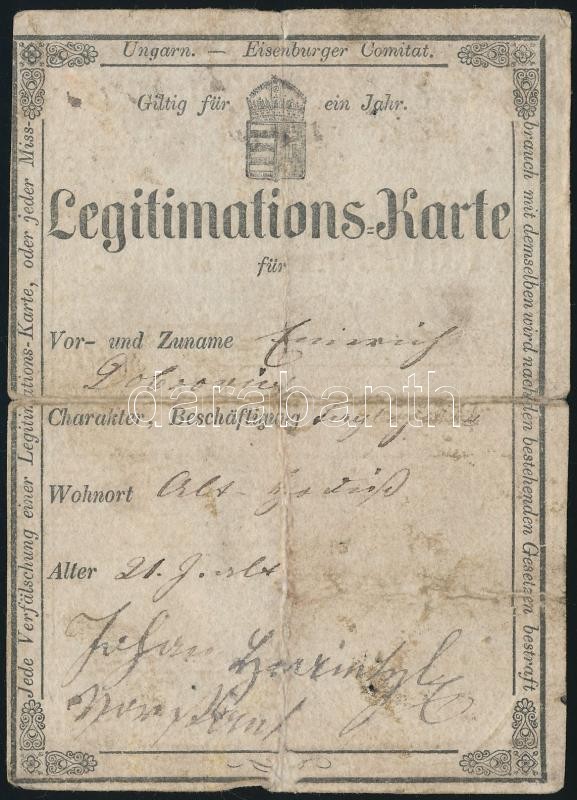 Ungarn. — Eisenburger Comitat.
Giltig für ein Jahr.
Legitimations-Karte
für
Vor- und Zuname Emerich
Charakter, Beschäftigung
Wohnort Alt-Hodiß
Alter 21. J. alt
Johan
Jede Verfälschung einer Legitimations-Karte, oder jeder Miss-
brauch mit demselben wird nach den bestehenden Gesetzen bestraft
darabanth